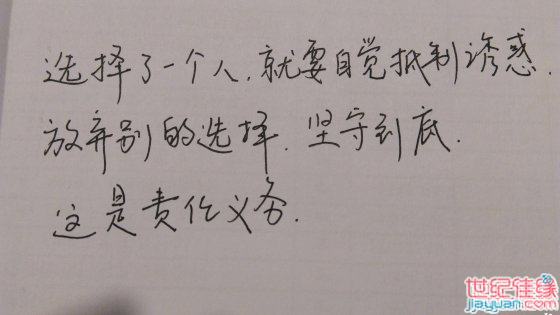 选择了一个人,就要自觉抵制诱惑.
放弃别的选择.坚守到底.
这是责任义务.
世纪佳缘
jiayuan.com